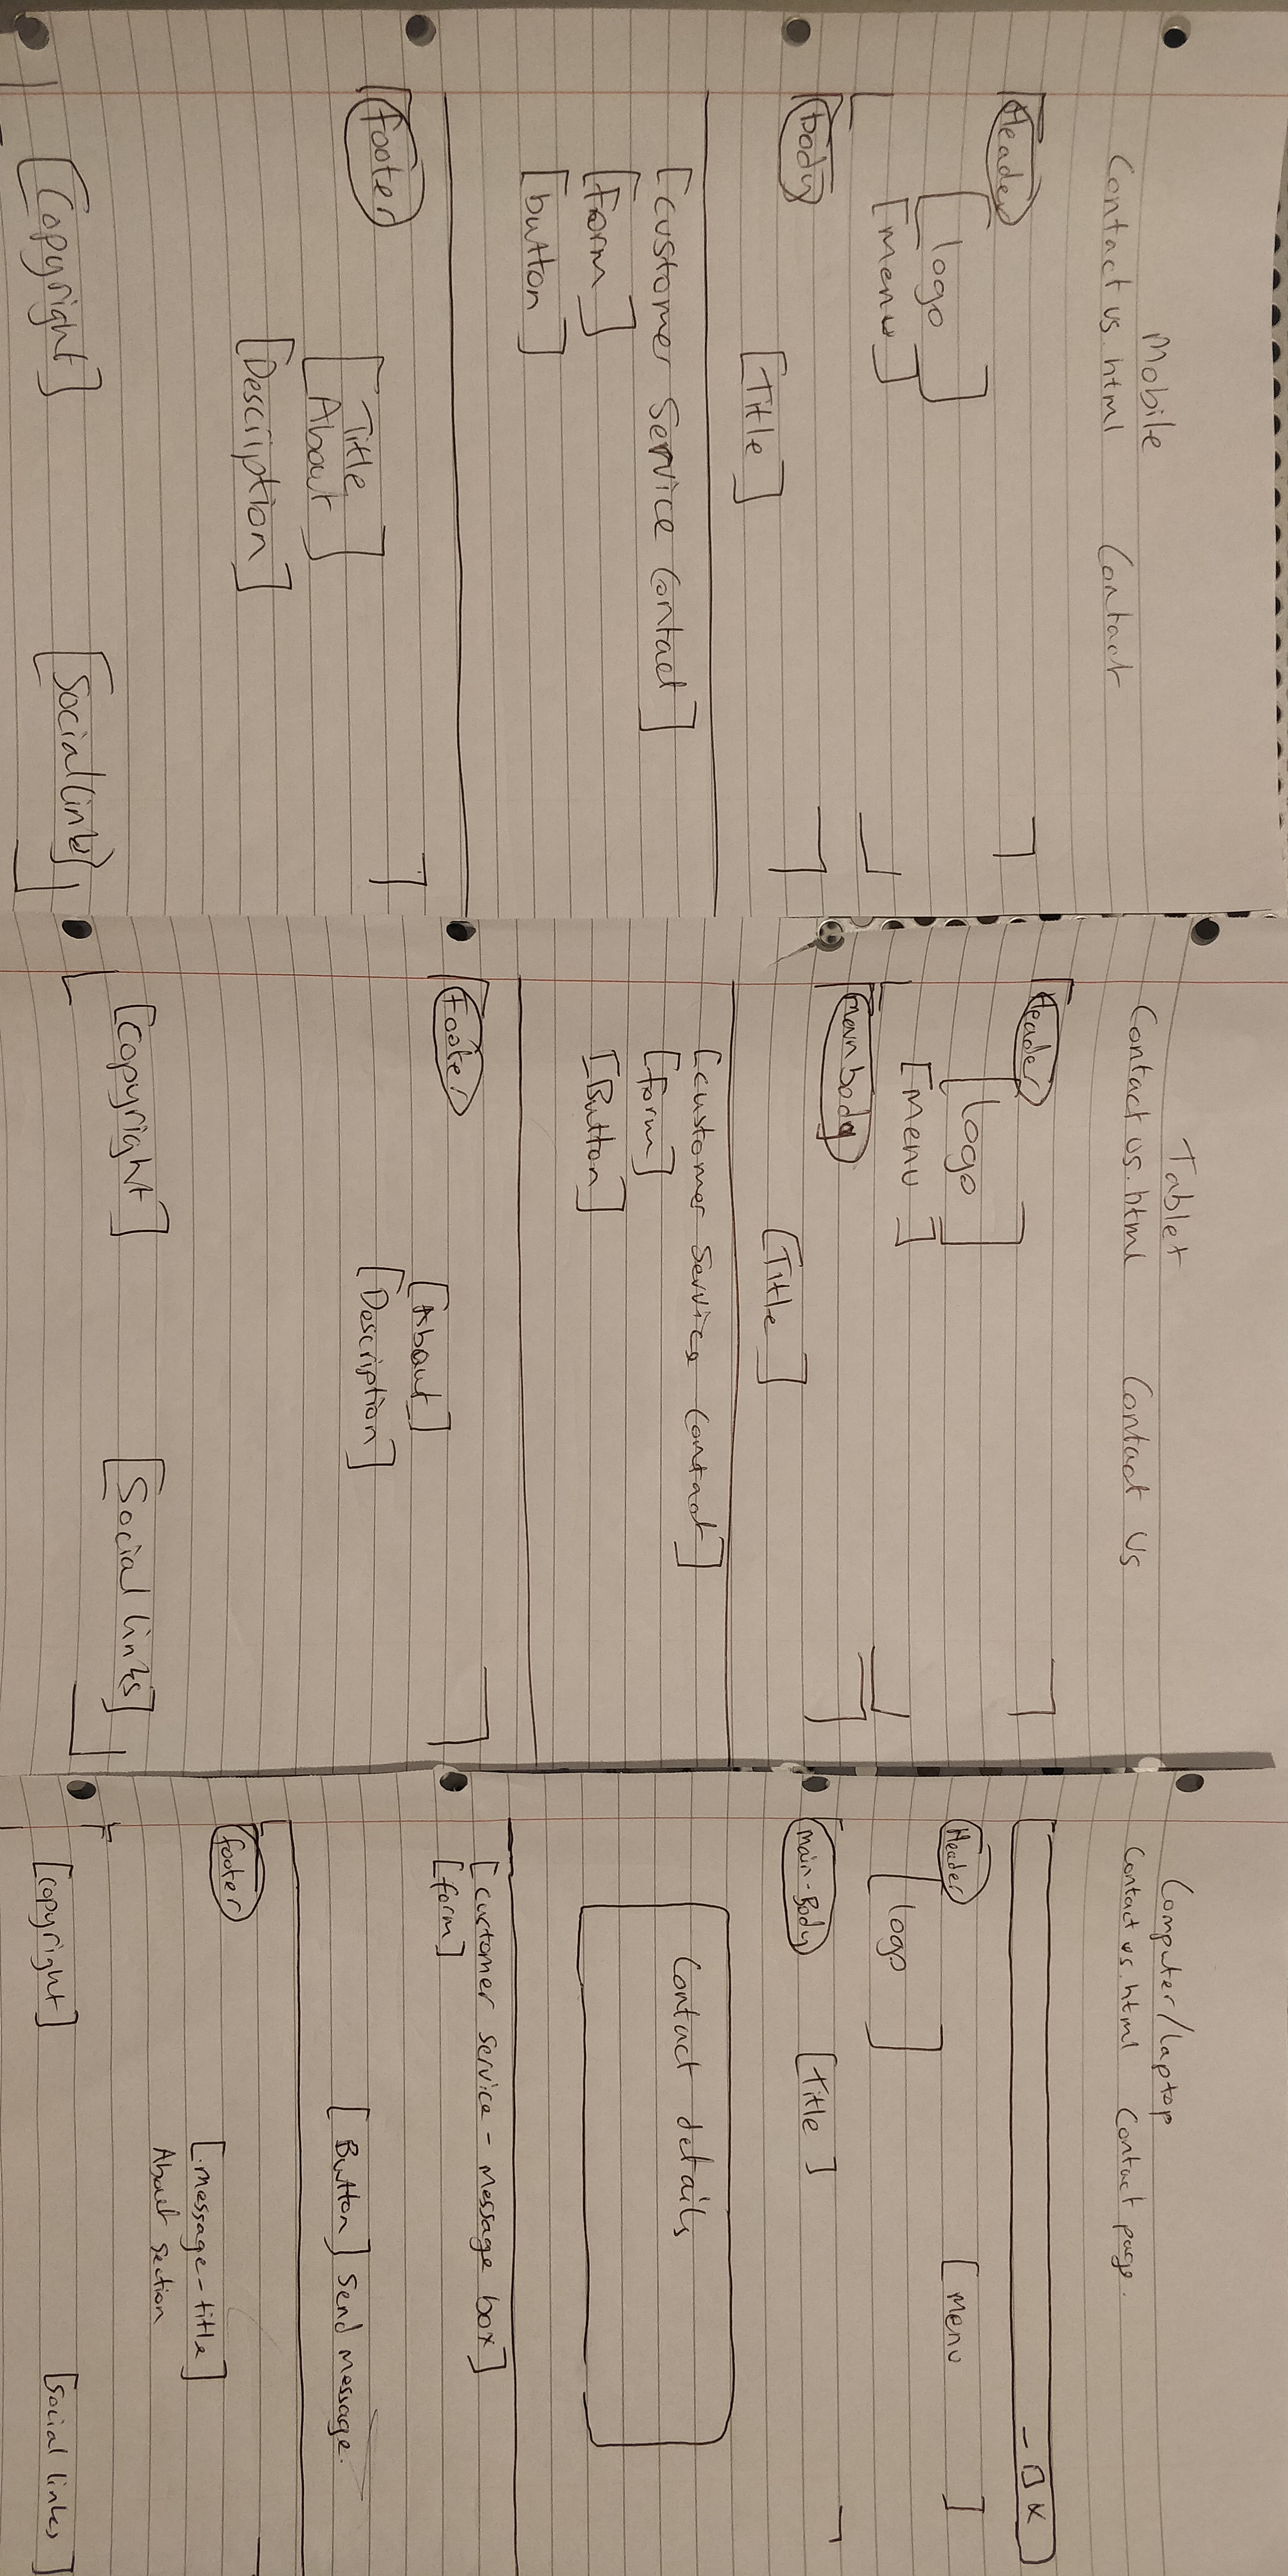 Mobile
Contact us.html Contact
Header
[logo]
[menu]
body
[Title]
[customer Service Contact]
[Form]
[button]
footer
[Title
About]
[Description]
[Copyright] [Social links]
Tablet
Contact us.html Contact Us
Header
[logo]
[menu]
main body
[Title]
[customer Service Contact]
[form]
[Button]
Footer
[About]
[Description]
[Copyright] [Social links]
Computer/laptop
Contact us.html Contact page.
Header [menu]
[logo]
main-Body [Title]
Contact details
[customer service - message box]
[form]
[Button] Send message.
footer
[message-title]
About section
[copyright] [social links]